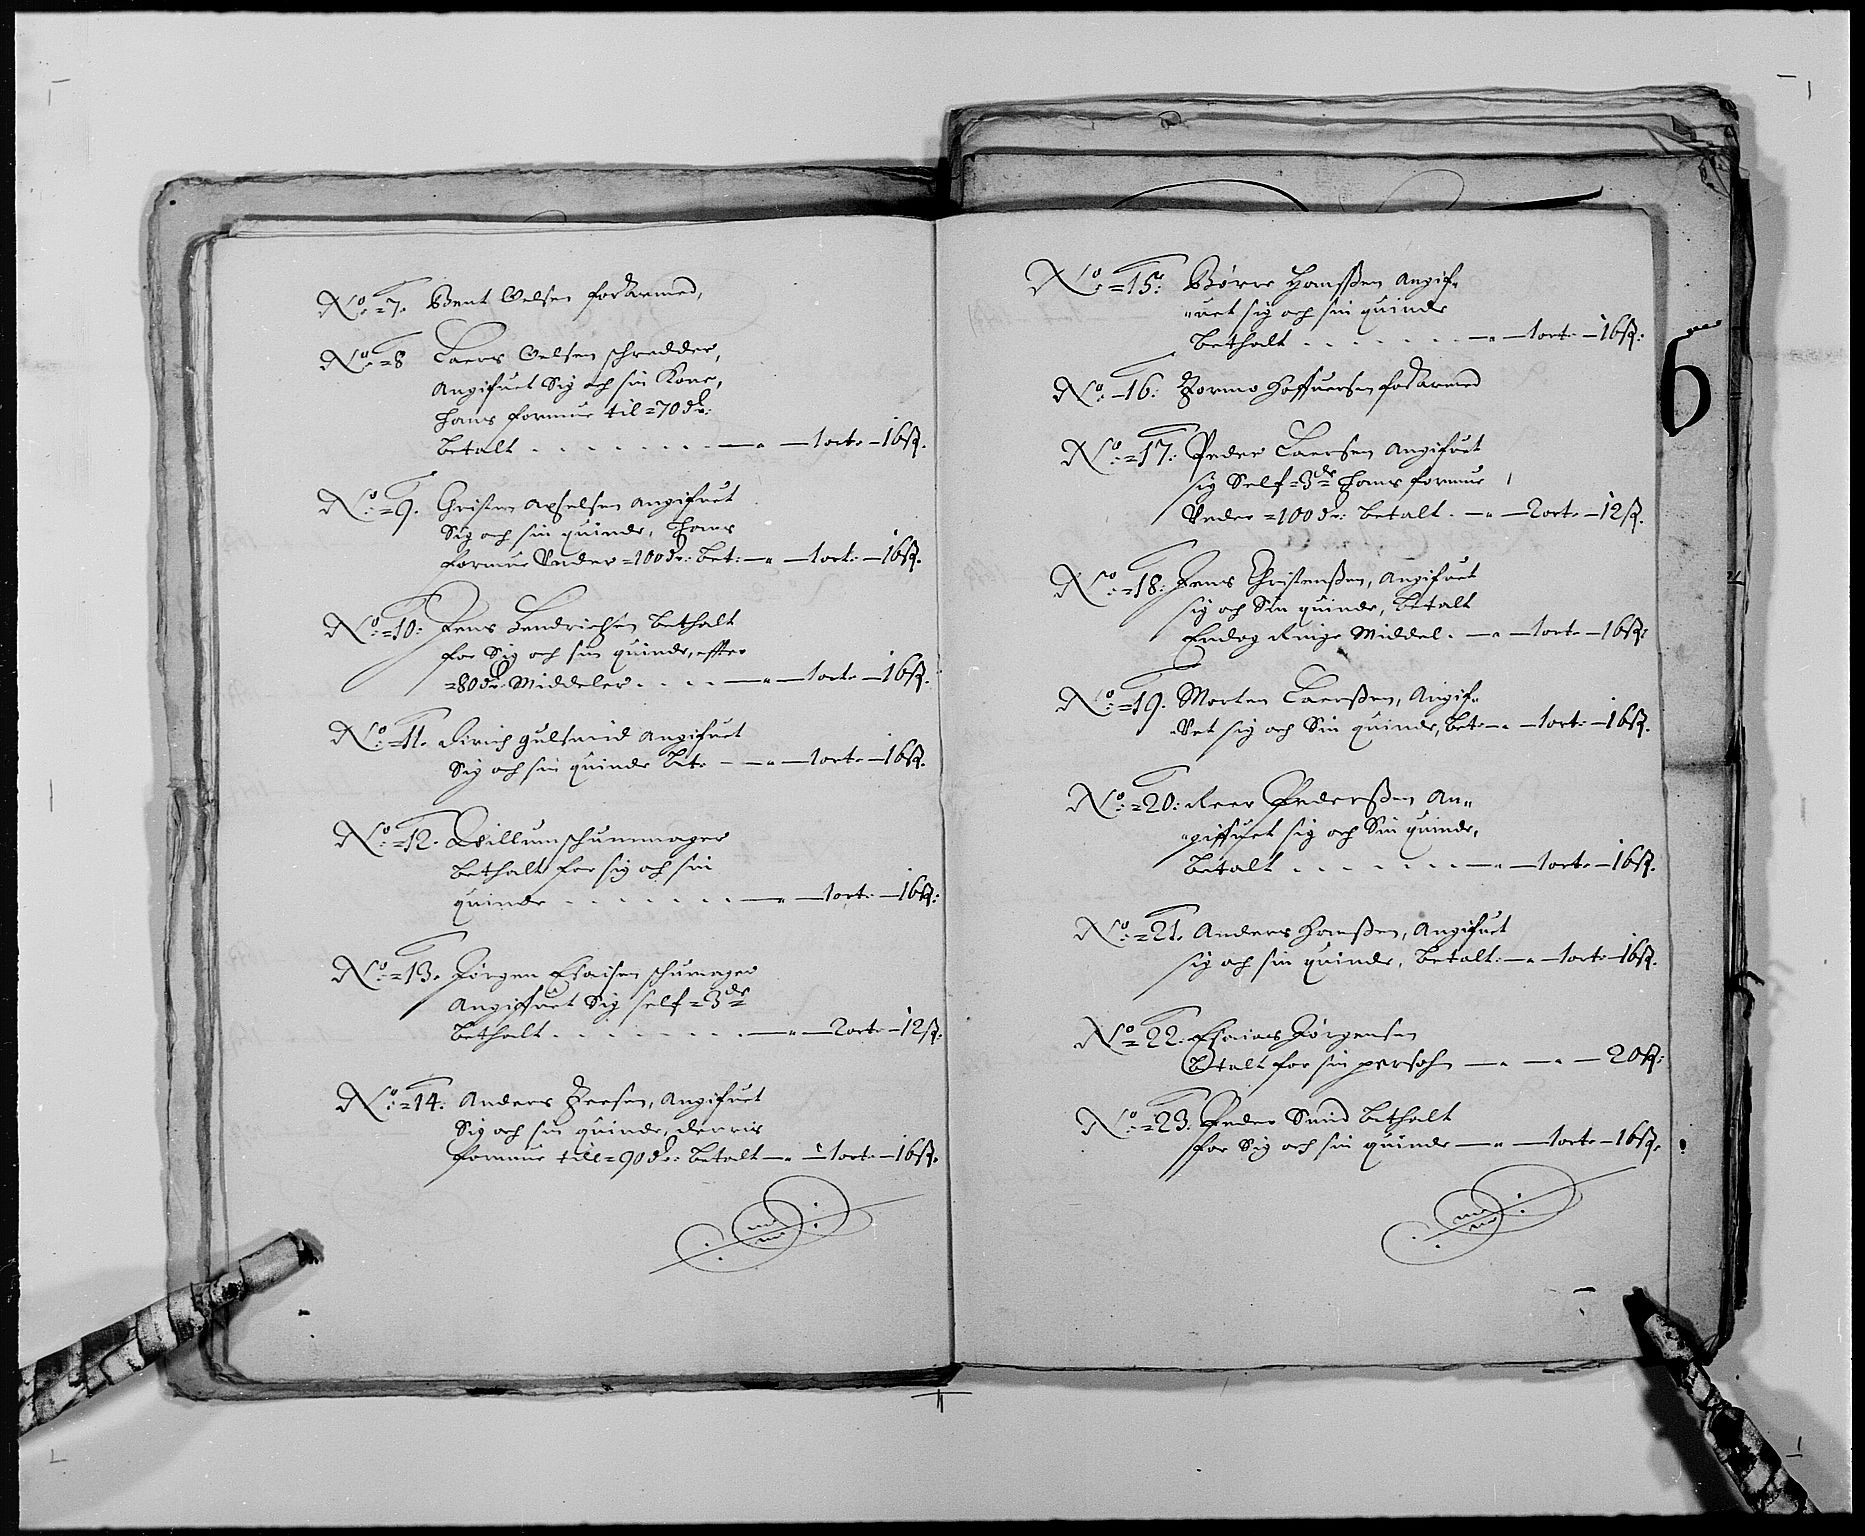 No: 7. Bent Oelsen forarmed,
No: 8 Laers Oelsen schredder,
Angifuet Sig och sin Kone,
hans formue til 70 dr:
betalt . . . . . . . — " — 1 ort — 16 ß.
No: 9. Christen Axelsen angifuet
Sig och sin quinde, Hans
formue Vnder 100 dr: bet: — " — 1 ort: — 16 ß.
No: 10: Jens Hendrichsen bethalt
for Sig och sin quinde, efter
80 dr. Middeler . . . . — " — 1 ort — 16 ß.
No: 11. Dirich gulsmid angifuet
Sig och sin quinde bet. — " — 1 ort — 16 ß.
No: 12. Willum schuemager
bethalt for sig och sin
quinde . . . . . . . — " — 1 ort — 16 ß:
No: 13. Jörgen Esaisen schumager
Angiffuet Sig self 3de
bethalt . . . . . . . — " — 2 ort — 12 ß.
No: 14: Anders Iversen, Angifuet
Sig och sin quinde, derris
formue till 90 dr: betalt — " — 1 ort — 16 ß.
No: 15: Börre Hanssen Angif„
„uet sig och sin quinde
bethalt . . . . . . . — " — 1 ort — 16 ß:
No: 16: forarmed
No: 17: Peder Laersen Angifuet
sig Self 3de hans formue
Vnder 100 dr: betalt . — " — 2 ort — 12 ß.
No: 18: Jens Christenßen, Angifuet
sig och Sin quinde, betalt
Endog Ringe Middel. — " — 1 ort — 16 ß:
No: 19. Morten Laerßen, Angif„
Vet sig och Sin quinde, bet — " — 1 ort — 16 ß.
No: 20: Peder­ßen An„
„giffuet sig och Sin quinde,
betalt . . . . . . . — " — 1 ort — 16 ß.
No: 21. Anders Hanßen, Angifuet
sig och sin quinde, betalt: — " — 1 ort — 16 ß.
No: 22. Esaias Jörgensen
Betalt for sin persohn — " — " — 20 ß:
No: 23. Peder Smid bethalt
for Sig och sin quinde — " — 1 ort — 16 ß.
6